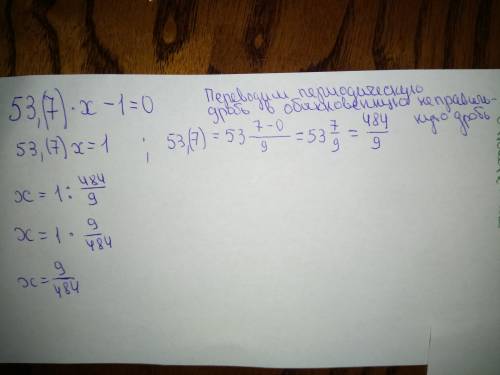 53,(7) · x − 1 = 0
Переводим периодическую
дробь в обыкновенную неправиль-
ную дробь
53,(7)x = 1 ; 53,(7) = 53 (7−0)/9 = 53 7/9 = 484/9
x = 1 : 484/9
x = 1 · 9/484
x = 9/484